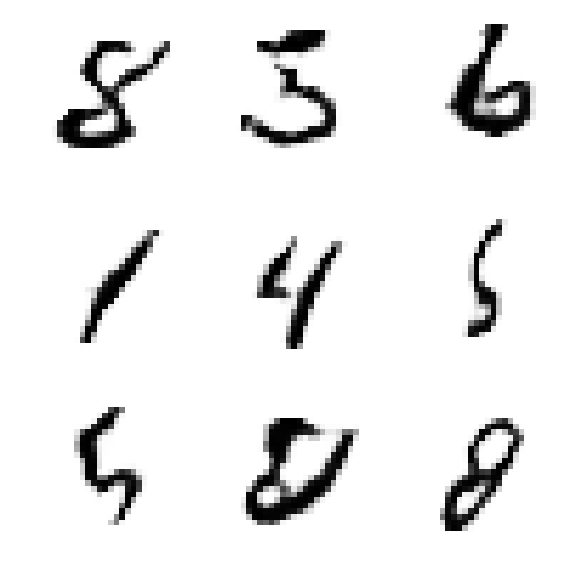 8 5 6
1 4 5
5 8 8